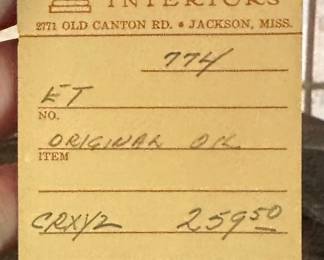 INTERIORS
2771 OLD CANTON RD. • JACKSON, MISS.
774
ET
NO.
ORIGINAL OIL
ITEM
CRXYZ 259.50